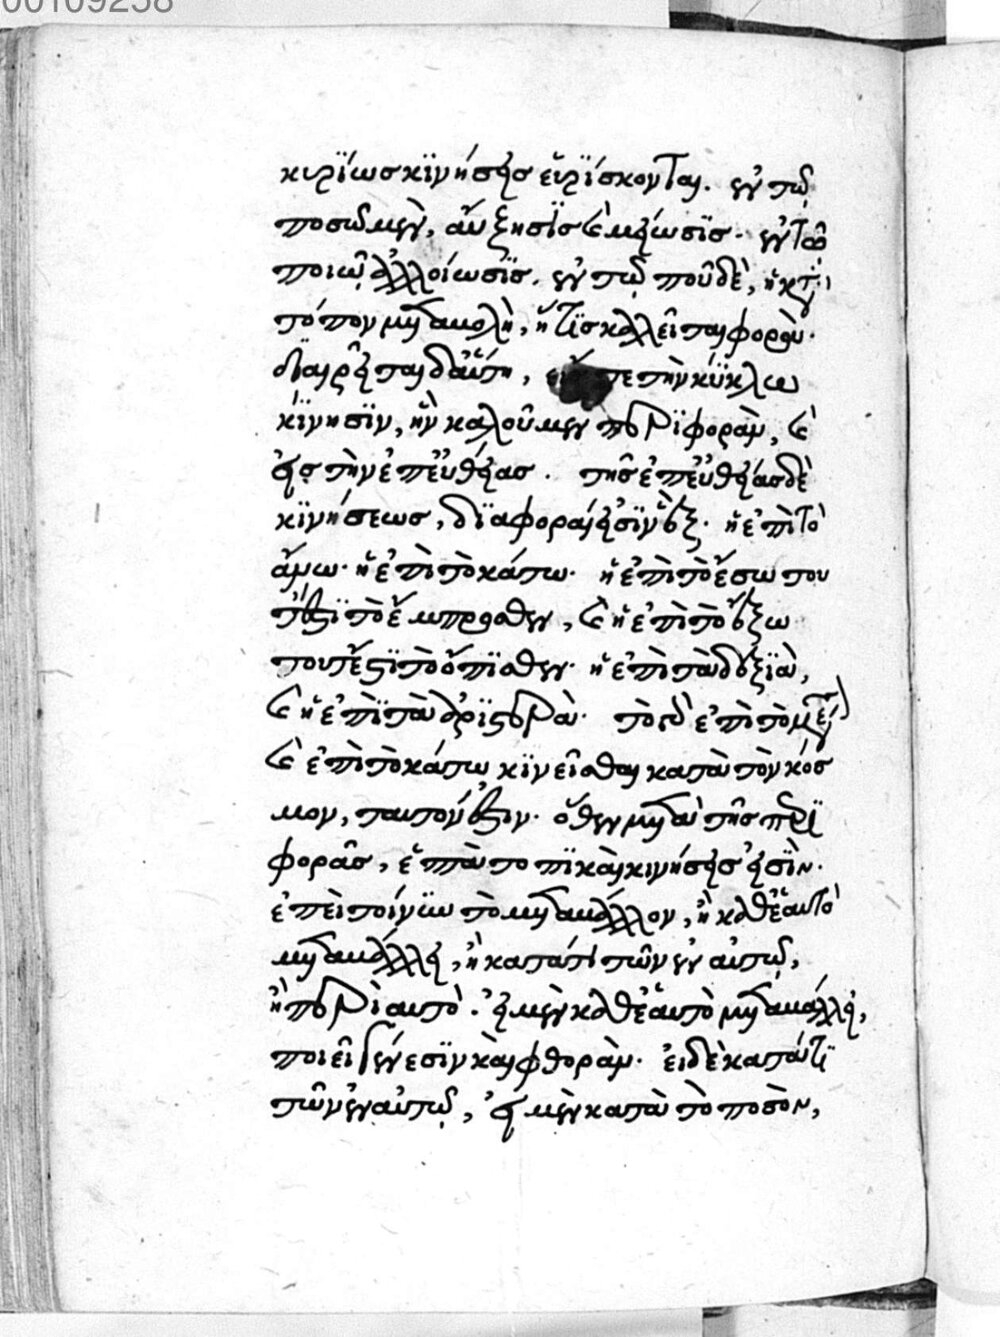 00109258
κυρΐως κϊνήσεις εὑρΐσκονται. ἐν τῶ
ποσῶ μὲν, αὔξησϊς καὶ μείωσϊς. ἐν τῶ
ποιῶ ἀλλοίωσϊς. ἐν τῶ ποῦ δὲ, ἡ κατὰ
τόπον μεταβολὴ, ἥτϊς καλλεῖται φορὰν.
δϊαιρεῖται δ' αὕτη, εἴς τε τὴν κΰκλω
κΐνησϊν, ἣν καλοῦμεν περϊφορὰν, καὶ
εἰς τὴν ἐπ' εὐθείας. τῆς ἐπ' εὐθείας δὲ
κϊνήσεως, δϊαφοραί εἰσϊν ἓξ. ἢ ἐπὶ τὸ
ἄνω. ἢ ἐπὶ τὸ κάτω. ἢ ἐπὶ τὸ ἔσω του
τέστϊ τὸ ἔμπροσθεν, καὶ ἢ ἐπὶ τὸ ἔξω
τουτέστϊ τὸ ὄπϊσθεν. ἢ ἐπὶ τὰ δεξϊὰ,
καὶ ἢ ἐπῒ τὰ ἀρϊστερὰ. τὸ δ' ἐπὶ τὸ μέν
καὶ ἐπὶ τὸ κάτω κϊνεῖσθαι κατὰ τὸν κόσ
μον, ταυτόν ἐστιν. ὅθεν μετὰ τῆς περϊ
φορᾶς, ἑπτὰ τοπϊκαὶ κινήσεις εἰσῒν.
ἐπεὶ τοίνυν τὸ μεταβάλλον, ἢ καθ' ἑαυτὸ
μεταβάλλει, ἢ κατά τι τῶν ἐν αὐτῶ,
ἢ περὶ αυτὸ. εἰ μὲν καθ' ἑαυτὸ μεταβάλλει,
ποιεῖ γένεσϊν καὶ φθορὰν. εἰ δὲ κατά τϊ
τῶν ἐν αὐτῶ, εἰ μὲν κατὰ τὸ ποσὸν,